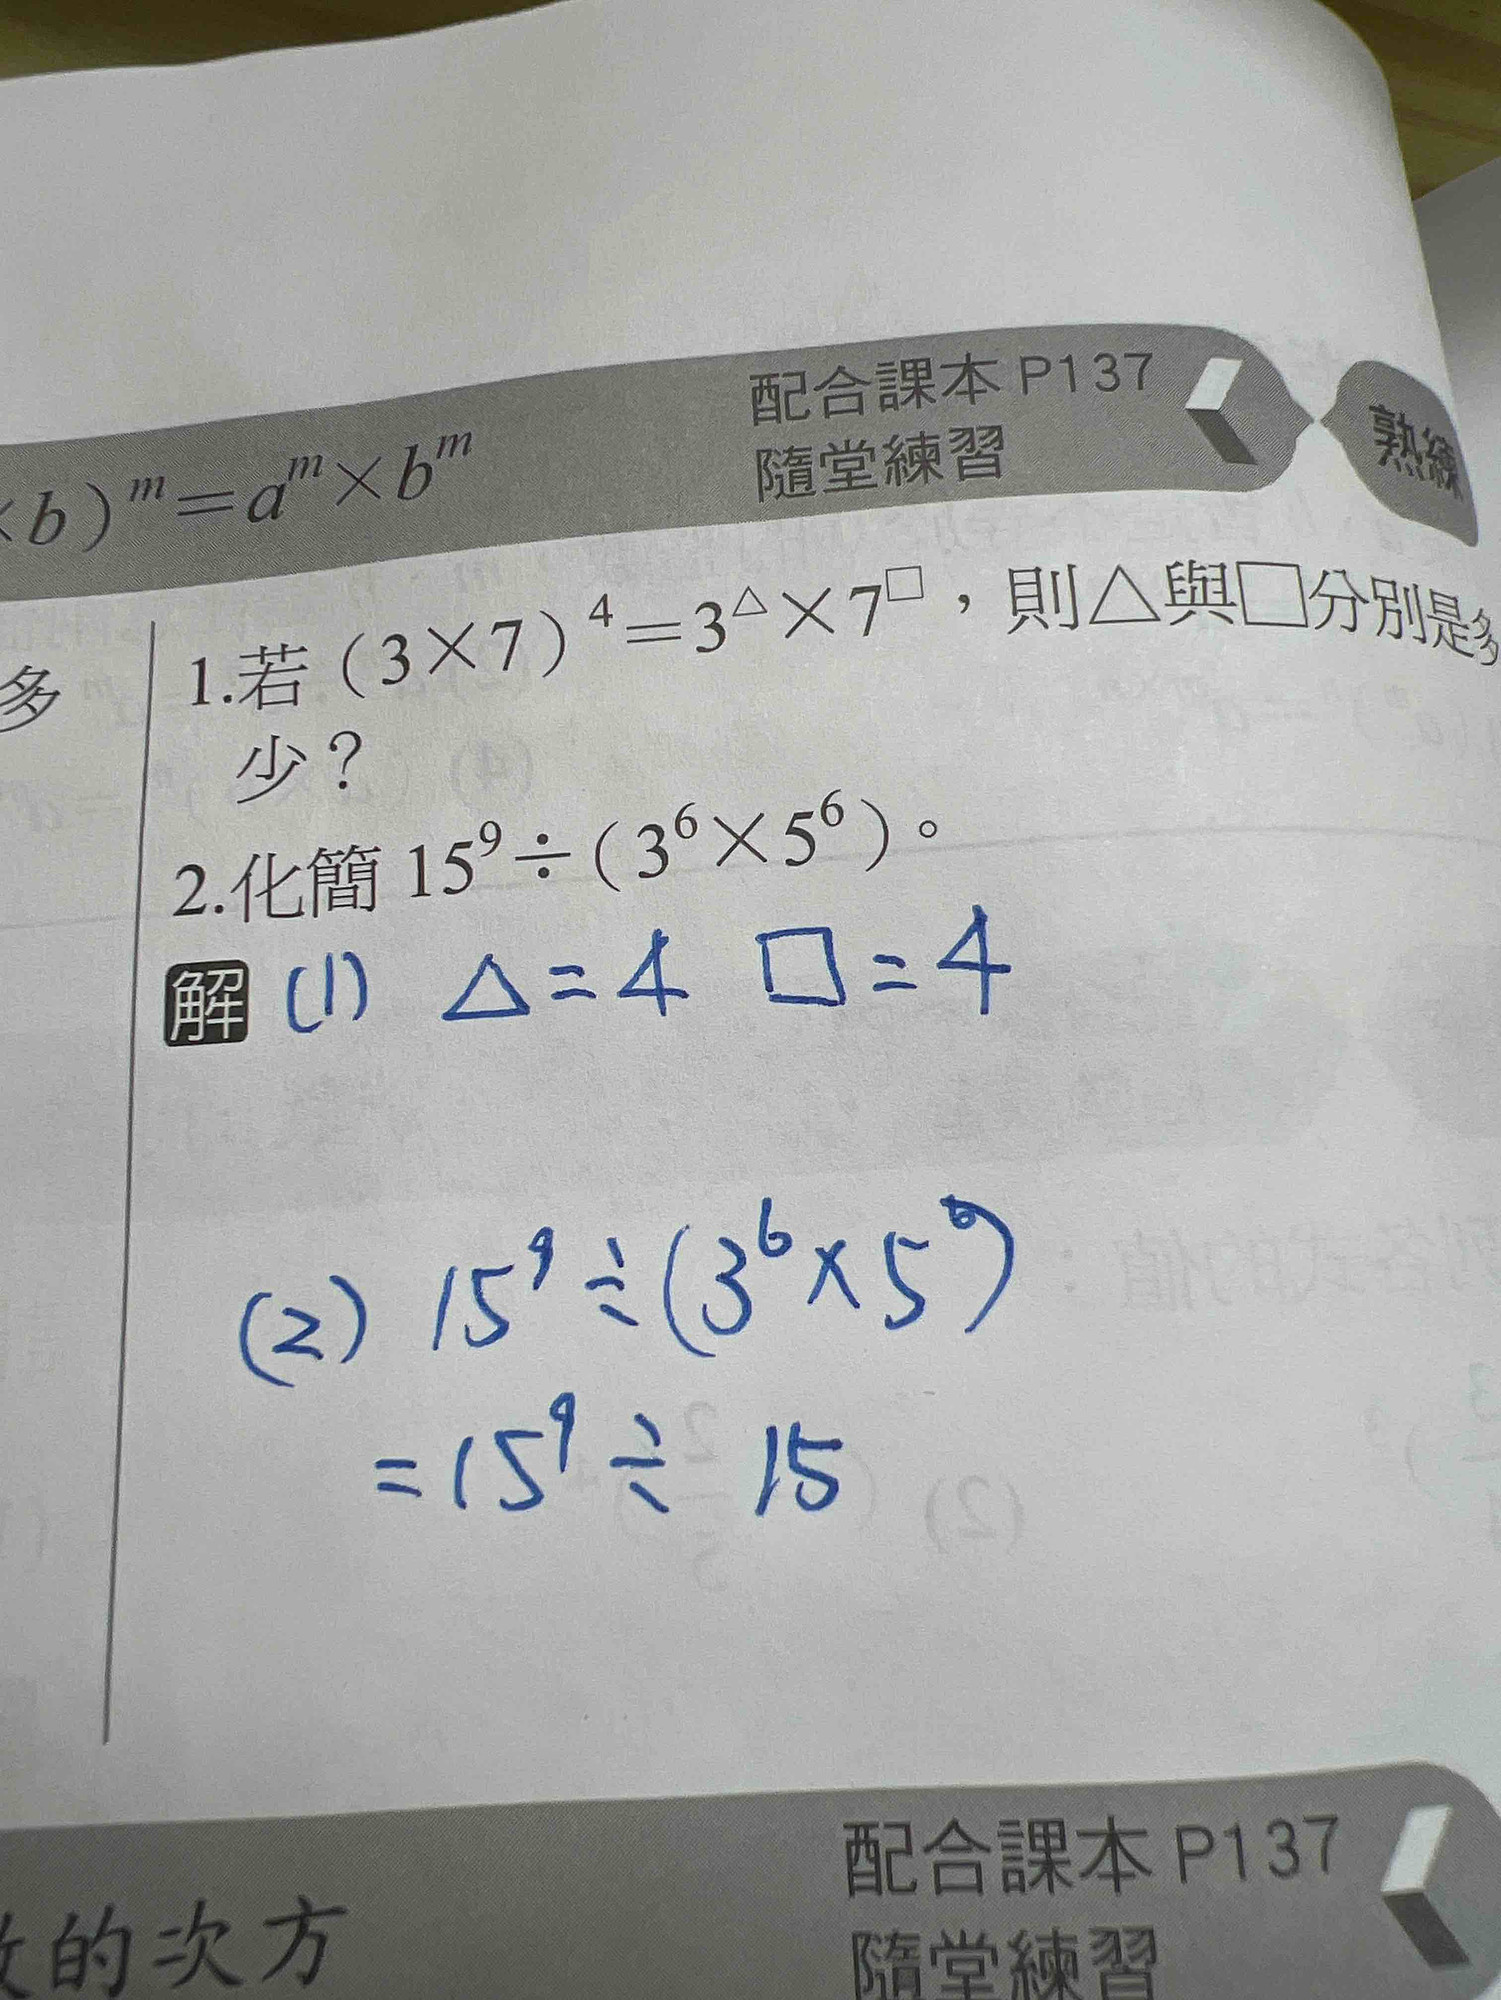 配合課本 P137
隨堂練習
熟練
×b)ᵐ=aᵐ×bᵐ
多
1.若(3×7)⁴=3^△×7^□，則△與□分別是多
少？
2.化簡 15⁹÷(3⁶×5⁶)。
解 (1) △=4 □=4
(2) 15⁹÷(3⁶×5⁶)
=15⁹÷ 15
配合課本 P137
隨堂練習
的次方